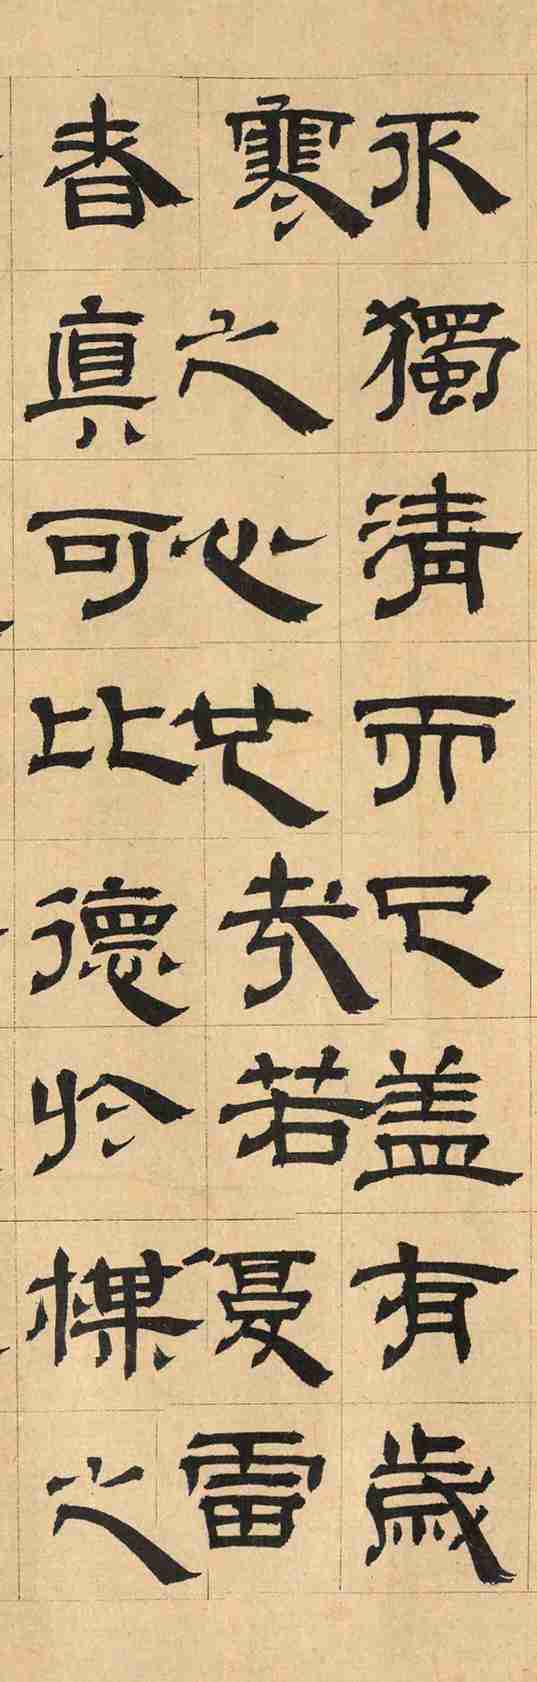 不獨清而已盖有歲
寒之心其於若夏雷
者真可比德於梅之